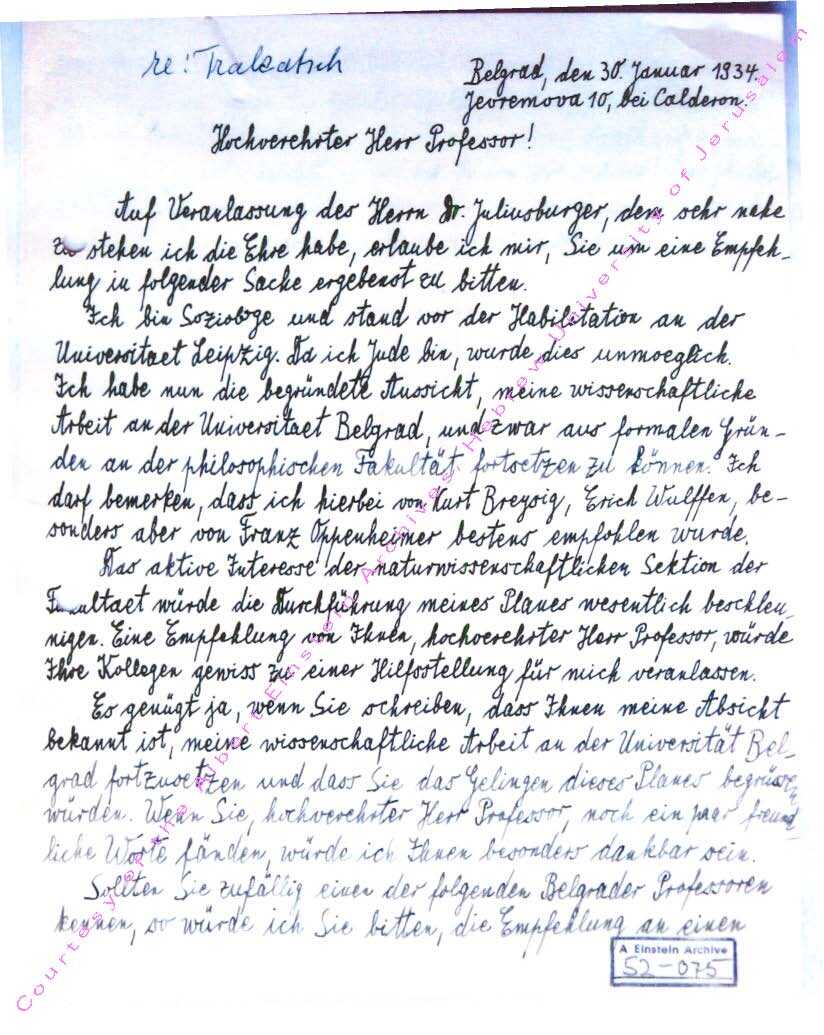 re: Trakatsch
Belgrad, den 30. Januar 1934.
Jevremova 10, bei Calderon.
Hochverehrter Herr Professor!
Auf Veranlassung des Herrn Dr. Juliusburger, dem sehr nahe
zu stehen ich die Ehre habe, erlaube ich mir, Sie um eine Empfeh-
lung in folgender Sache ergebenst zu bitten.
Ich bin Soziologe und stand vor der Habilitation an der
Universitaet Leipzig. Da ich Jude bin, wurde dies unmoeglich.
Ich habe nun die begründete Aussicht, meine wissenschaftliche
Arbeit an der Universitaet Belgrad, und zwar aus formalen Grün-
den an der philosophischen Fakultät fortsetzen zu können. Ich
darf bemerken, dass ich hierbei von Kurt Breysig, Erich Wulffen, be-
sonders aber von Franz Oppenheimer bestens empfohlen wurde.
Das aktive Interesse der naturwissenschaftlichen Sektion der
Fakultaet würde die Durchführung meines Planes wesentlich beschleu-
nigen. Eine Empfehlung von Ihnen, hochverehrter Herr Professor, würde
Ihre Kollegen gewiss zu einer Hilfsstellung für mich veranlassen.
Es genügt ja, wenn Sie schreiben, dass Ihnen meine Absicht
bekannt ist, meine wissenschaftliche Arbeit an der Universität Bel-
grad fortzusetzen und dass Sie das Gelingen dieses Planes begrüssen
würden. Wenn Sie, hochverehrter Herr Professor, noch ein paar freund-
liche Worte fänden, würde ich Ihnen besonders dankbar sein.
Sollten Sie zufällig einen der folgenden Belgrader Professoren
kennen, so würde ich Sie bitten, die Empfehlung an einen
A Einstein Archive
52-075
Courtesy of the Albert Einstein Archives, Hebrew University of Jerusalem